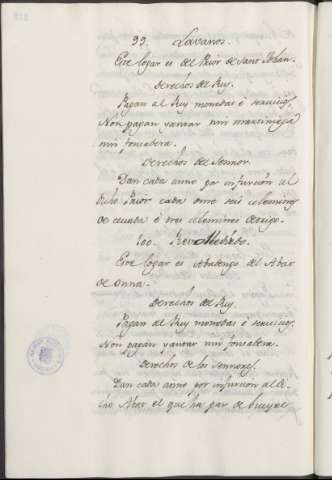 99. Lavanos.
Este logar es del Prior de Sant Johan.
Derechos del Rey.
Pagan al Rey monedas é servicios.
Non pagan yantar nin martiniega
nin fonsadera.
Derechos del Sennor.
Dan cada anno por infurción al
dicho Prior cada omne seis celemines
de cevada é tres celemines de trigo.
100.
Este logar es Abadengo del Abat
de Onna.
Derechos del Rey.
Pagan al Rey monedas é servicios.
Non pagan yantar nin fonsadera.
Derechos de los Sennores.
Dan cada anno por infurcion al di-
cho Abat el que ha par de bueyes